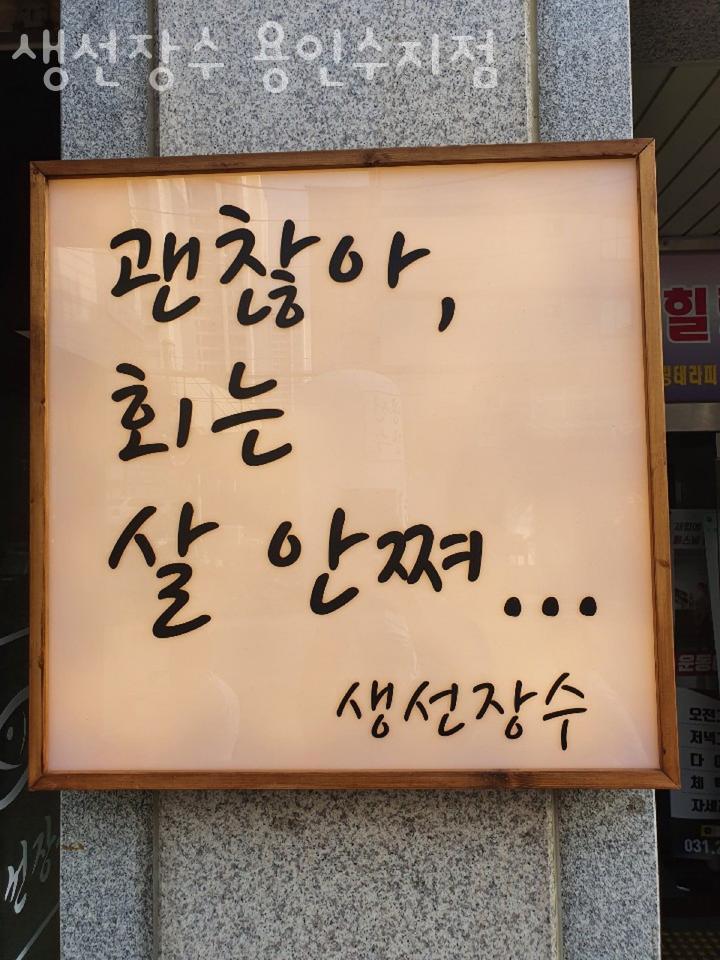 생선장수 용인수지점
괜찮아,
회는
살 안쪄...
생선장수
힐
테라피
운동
오전
저녁
다
체
자세
031.